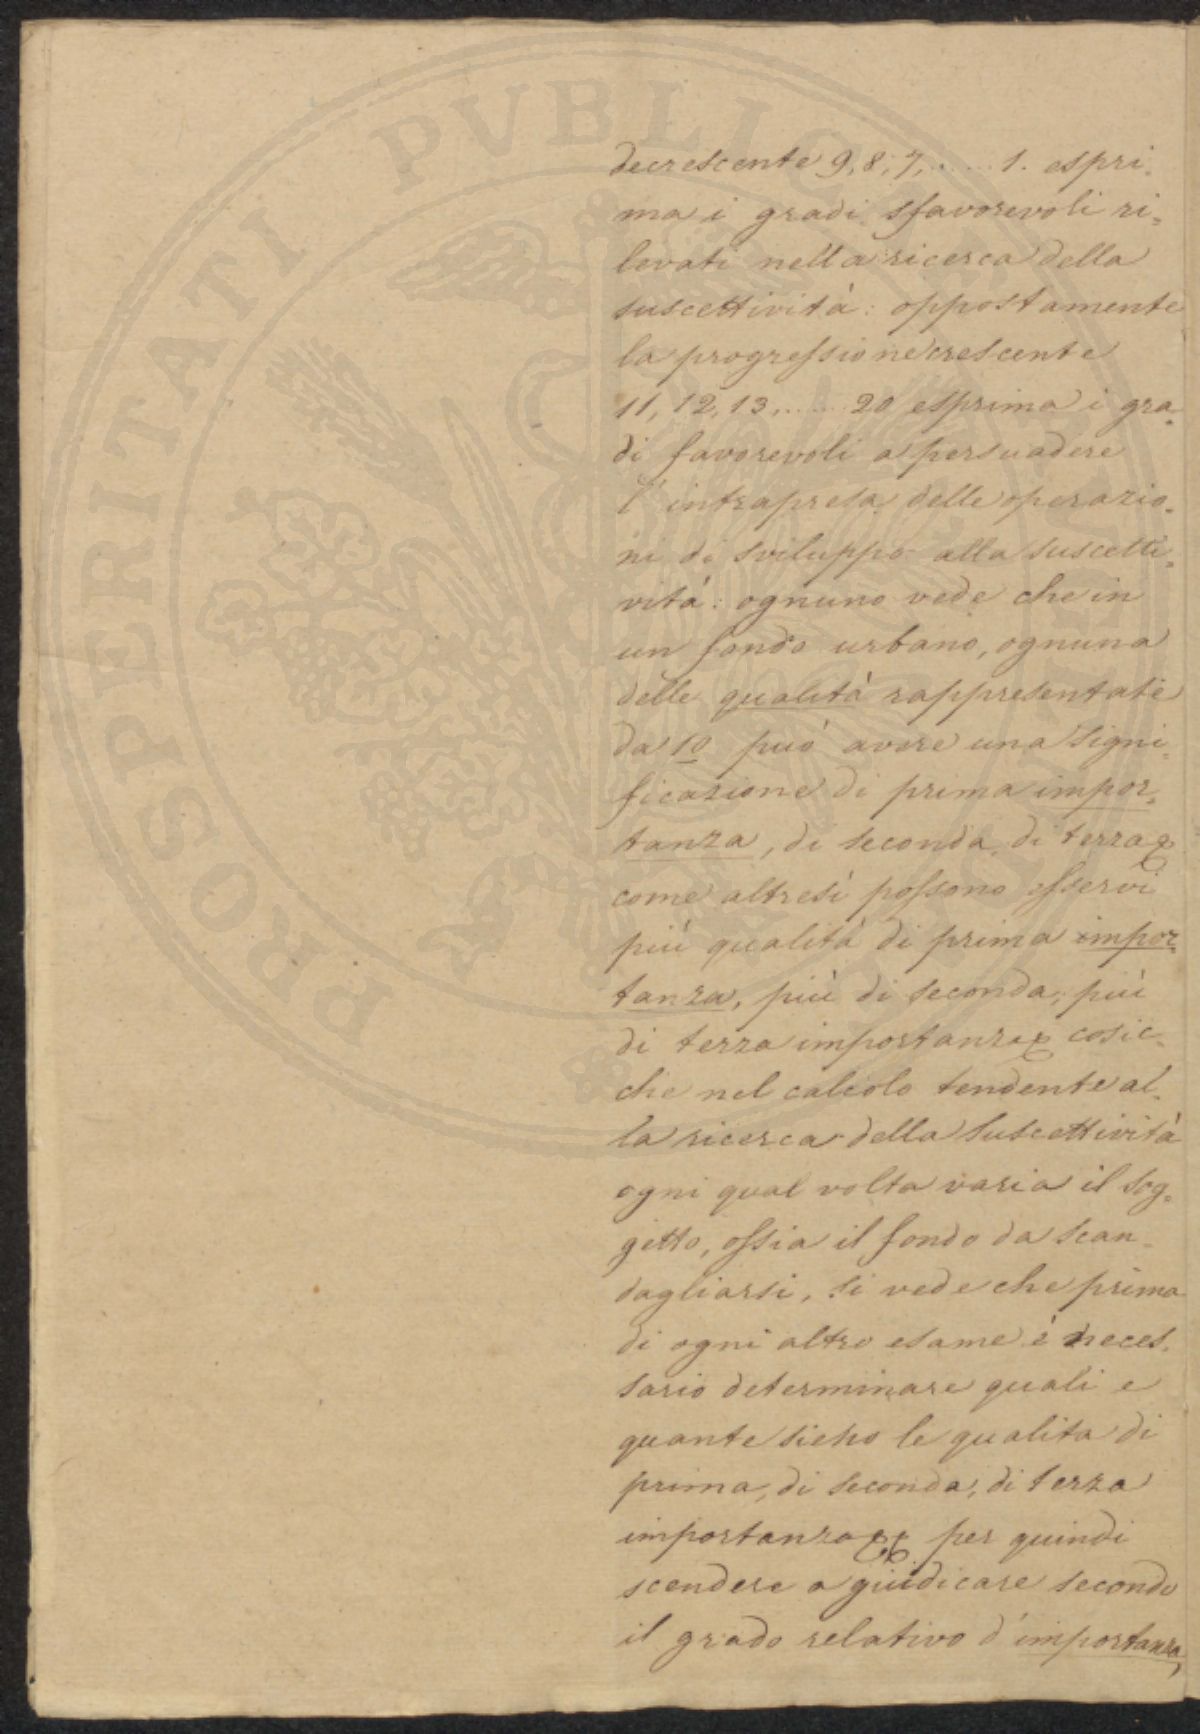 decrescente 9, 8, 7, ..... 1. espri-
ma i gradi sfavorevoli ri-
levati nella ricerca della
suscettività: oppostamente
la progressione crescente
11, 12, 13, ..... 20 esprima i gra-
di favorevoli a persuadere
l'intrapresa delle operazio-
ni di sviluppo alla suscetti-
vità: ognuno vede che in
un fondo urbano, ognuna
delle qualità rappresentate
da 10 può avere una signi-
ficazione di prima impor-
tanza, di seconda, di terza &
come altresì possono esservi
più qualità di prima impor-
tanza, più di seconda, più
di terza importanza & cosic-
che nel calcolo tendente al-
la ricerca della suscettività
ogni qual volta varia il sog-
getto, ossia il fondo da scan-
dagliarsi, si vede che prima
di ogni altro esame è neces-
sario determinare quali e
quante sieno le qualita di
prima, di seconda, di terza
importanza && per quindi
scendere a giudicare secondo
il grado relativo d'importanza,
PROSPERITATI PVBLICAE